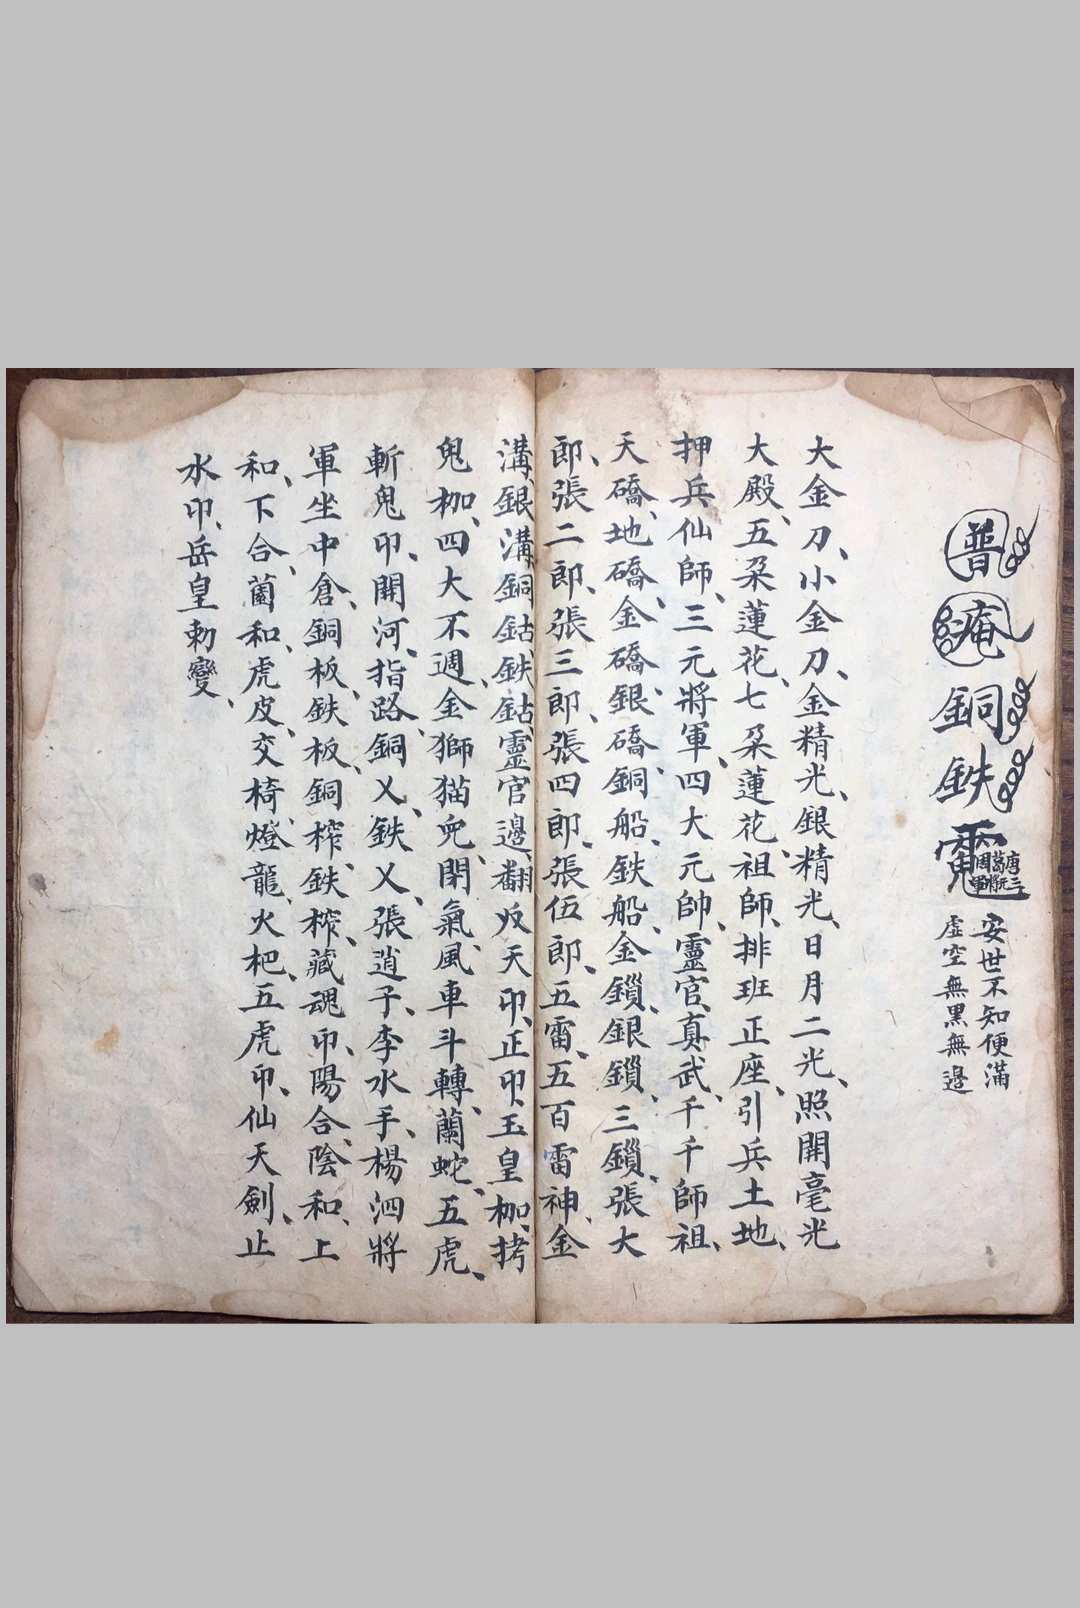 普庵銅鉄
唐葛周
三元將軍
安世不知便滿
虛空無黑無邊
大金刀、小金刀、金精光、銀精光、日月二光、照開毫光
大殿、五朶蓮花、七朶蓮花、祖師、排班正座、引兵土地、
押兵仙師、三元將軍、四大元帥、靈官、真武、千千師祖、
天礄、地礄、金礄、銀礄、銅船、鉄船、金鎖、銀鎖、三鎖、張大
郎、張二郎、張三郎、張四郎、張伍郎、五雷、五百雷神、金
溝、銀溝、銅鈷、鉄鈷、靈官邊、翻天印、正印、玉皇枷、拷
鬼枷、四大不週、金獅猫兒、閉氣、風車斗轉、蘭蛇、五虎、
斬鬼印、開河、指路、銅乂、鉄乂、張逍子、李水手、楊泗將
軍坐中倉、銅板、鉄板、銅榨、鉄榨、藏魂印、陽合、陰和、上
和、下合、蘭和、虎皮交椅、燈龍、火杷、五虎印、仙天劍、止
水印、岳皇勅變、